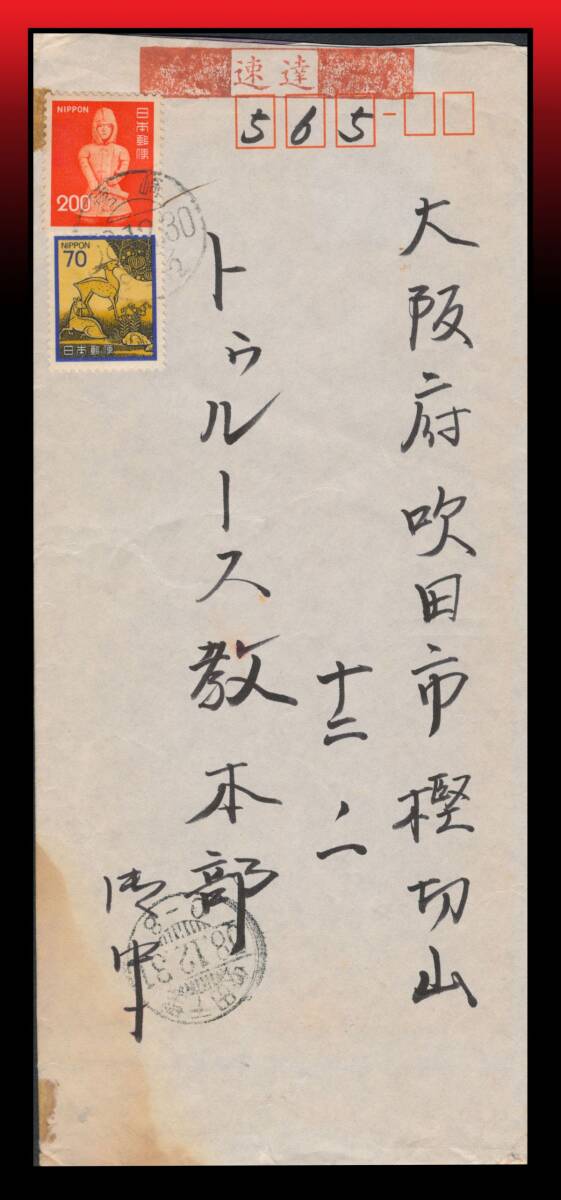 速達
565
NIPPON
日本郵便
200
NIPPON
70
日本郵便
大阪府吹田市樫切山
十二ノ一
トゥルース教本部
御中
58.12.31